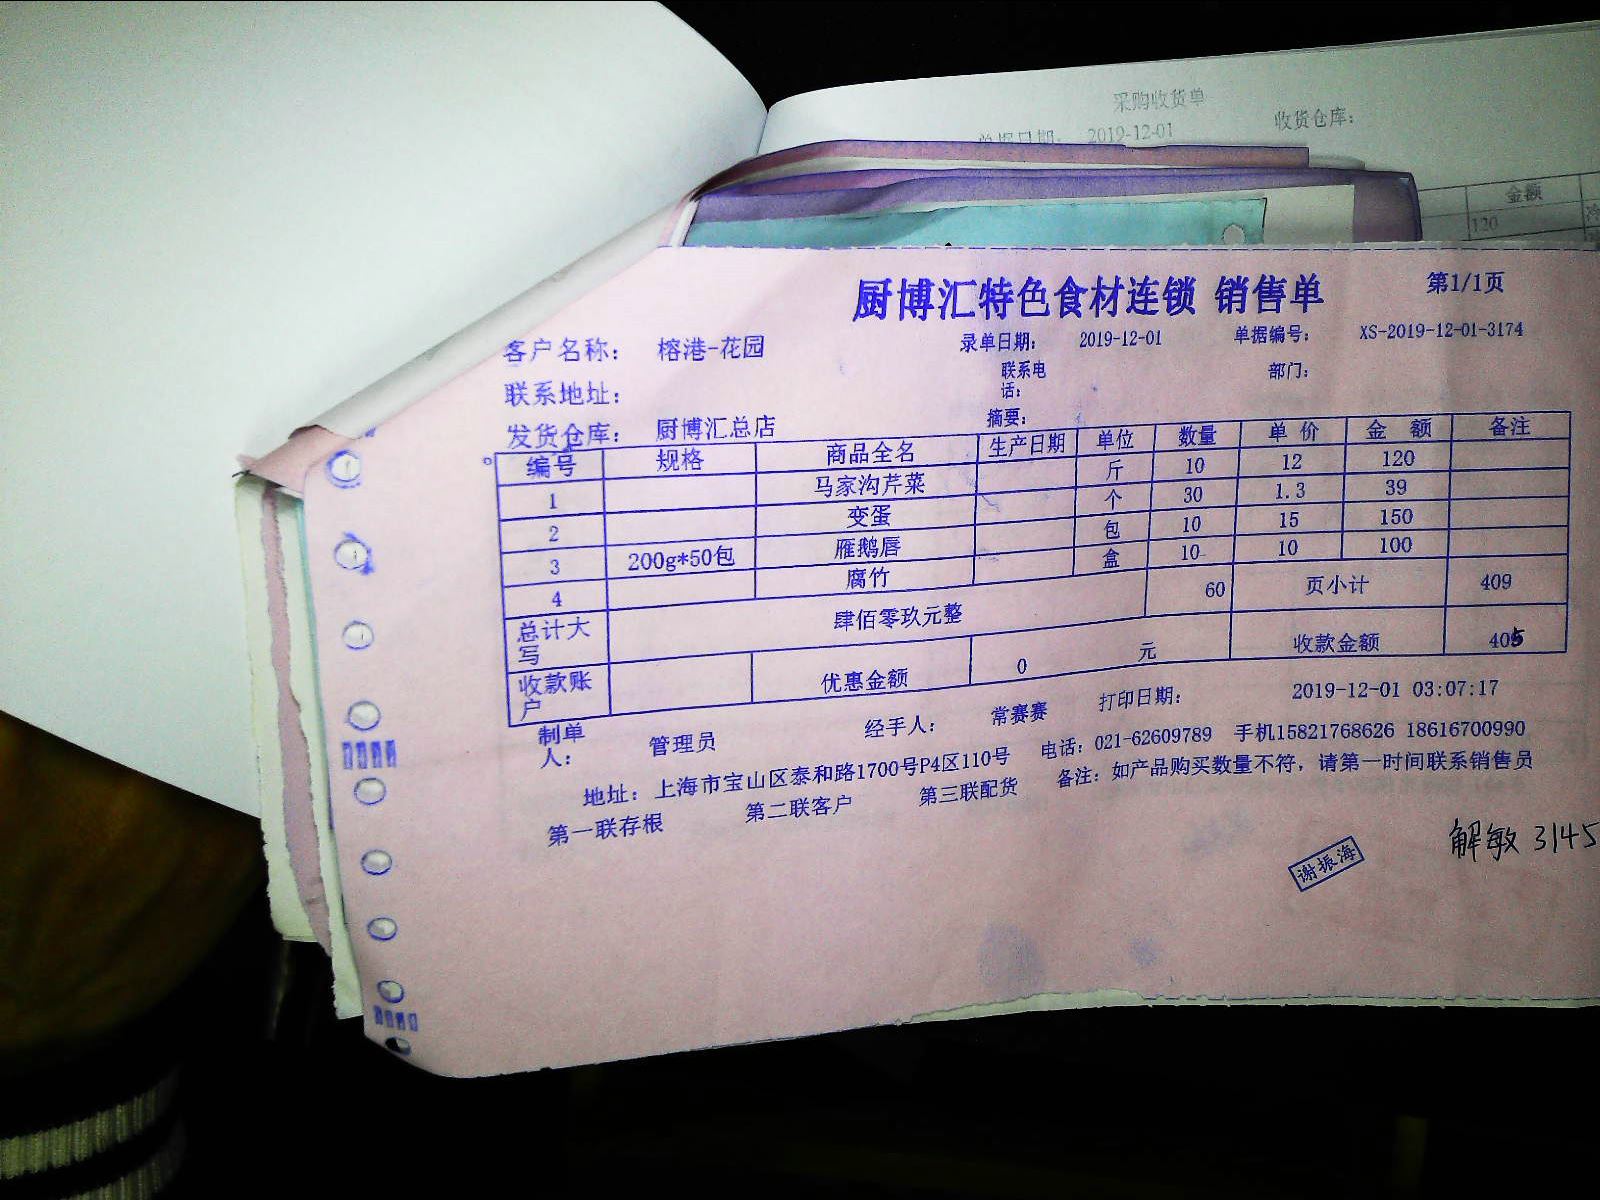 采购收货单
单据日期: 2019-12-01 收货仓库:
金额
120
厨博汇特色食材连锁 销售单 第1/1页
客户名称: 榕港-花园 录单日期: 2019-12-01 单据编号: XS-2019-12-01-3174
联系地址: 联系电话: 部门:
发货仓库: 厨博汇总店 摘要:
编号 规格 商品全名 生产日期 单位 数量 单价 金额 备注
1 马家沟芹菜 斤 10 12 120
2 变蛋 个 30 1.3 39
3 200g*50包 雁鹅唇 包 10 15 150
4 腐竹 盒 10 10 100
总计大写 肆佰零玖元整 60 页小计 409
收款账户 优惠金额 0 元 收款金额 405
制单人: 管理员 经手人: 常赛赛 打印日期: 2019-12-01 03:07:17
地址: 上海市宝山区泰和路1700号P4区110号 电话: 021-62609789 手机15821768626 18616700990
第一联存根 第二联客户 第三联配货 备注: 如产品购买数量不符, 请第一时间联系销售员
谢振海
解敏 3145